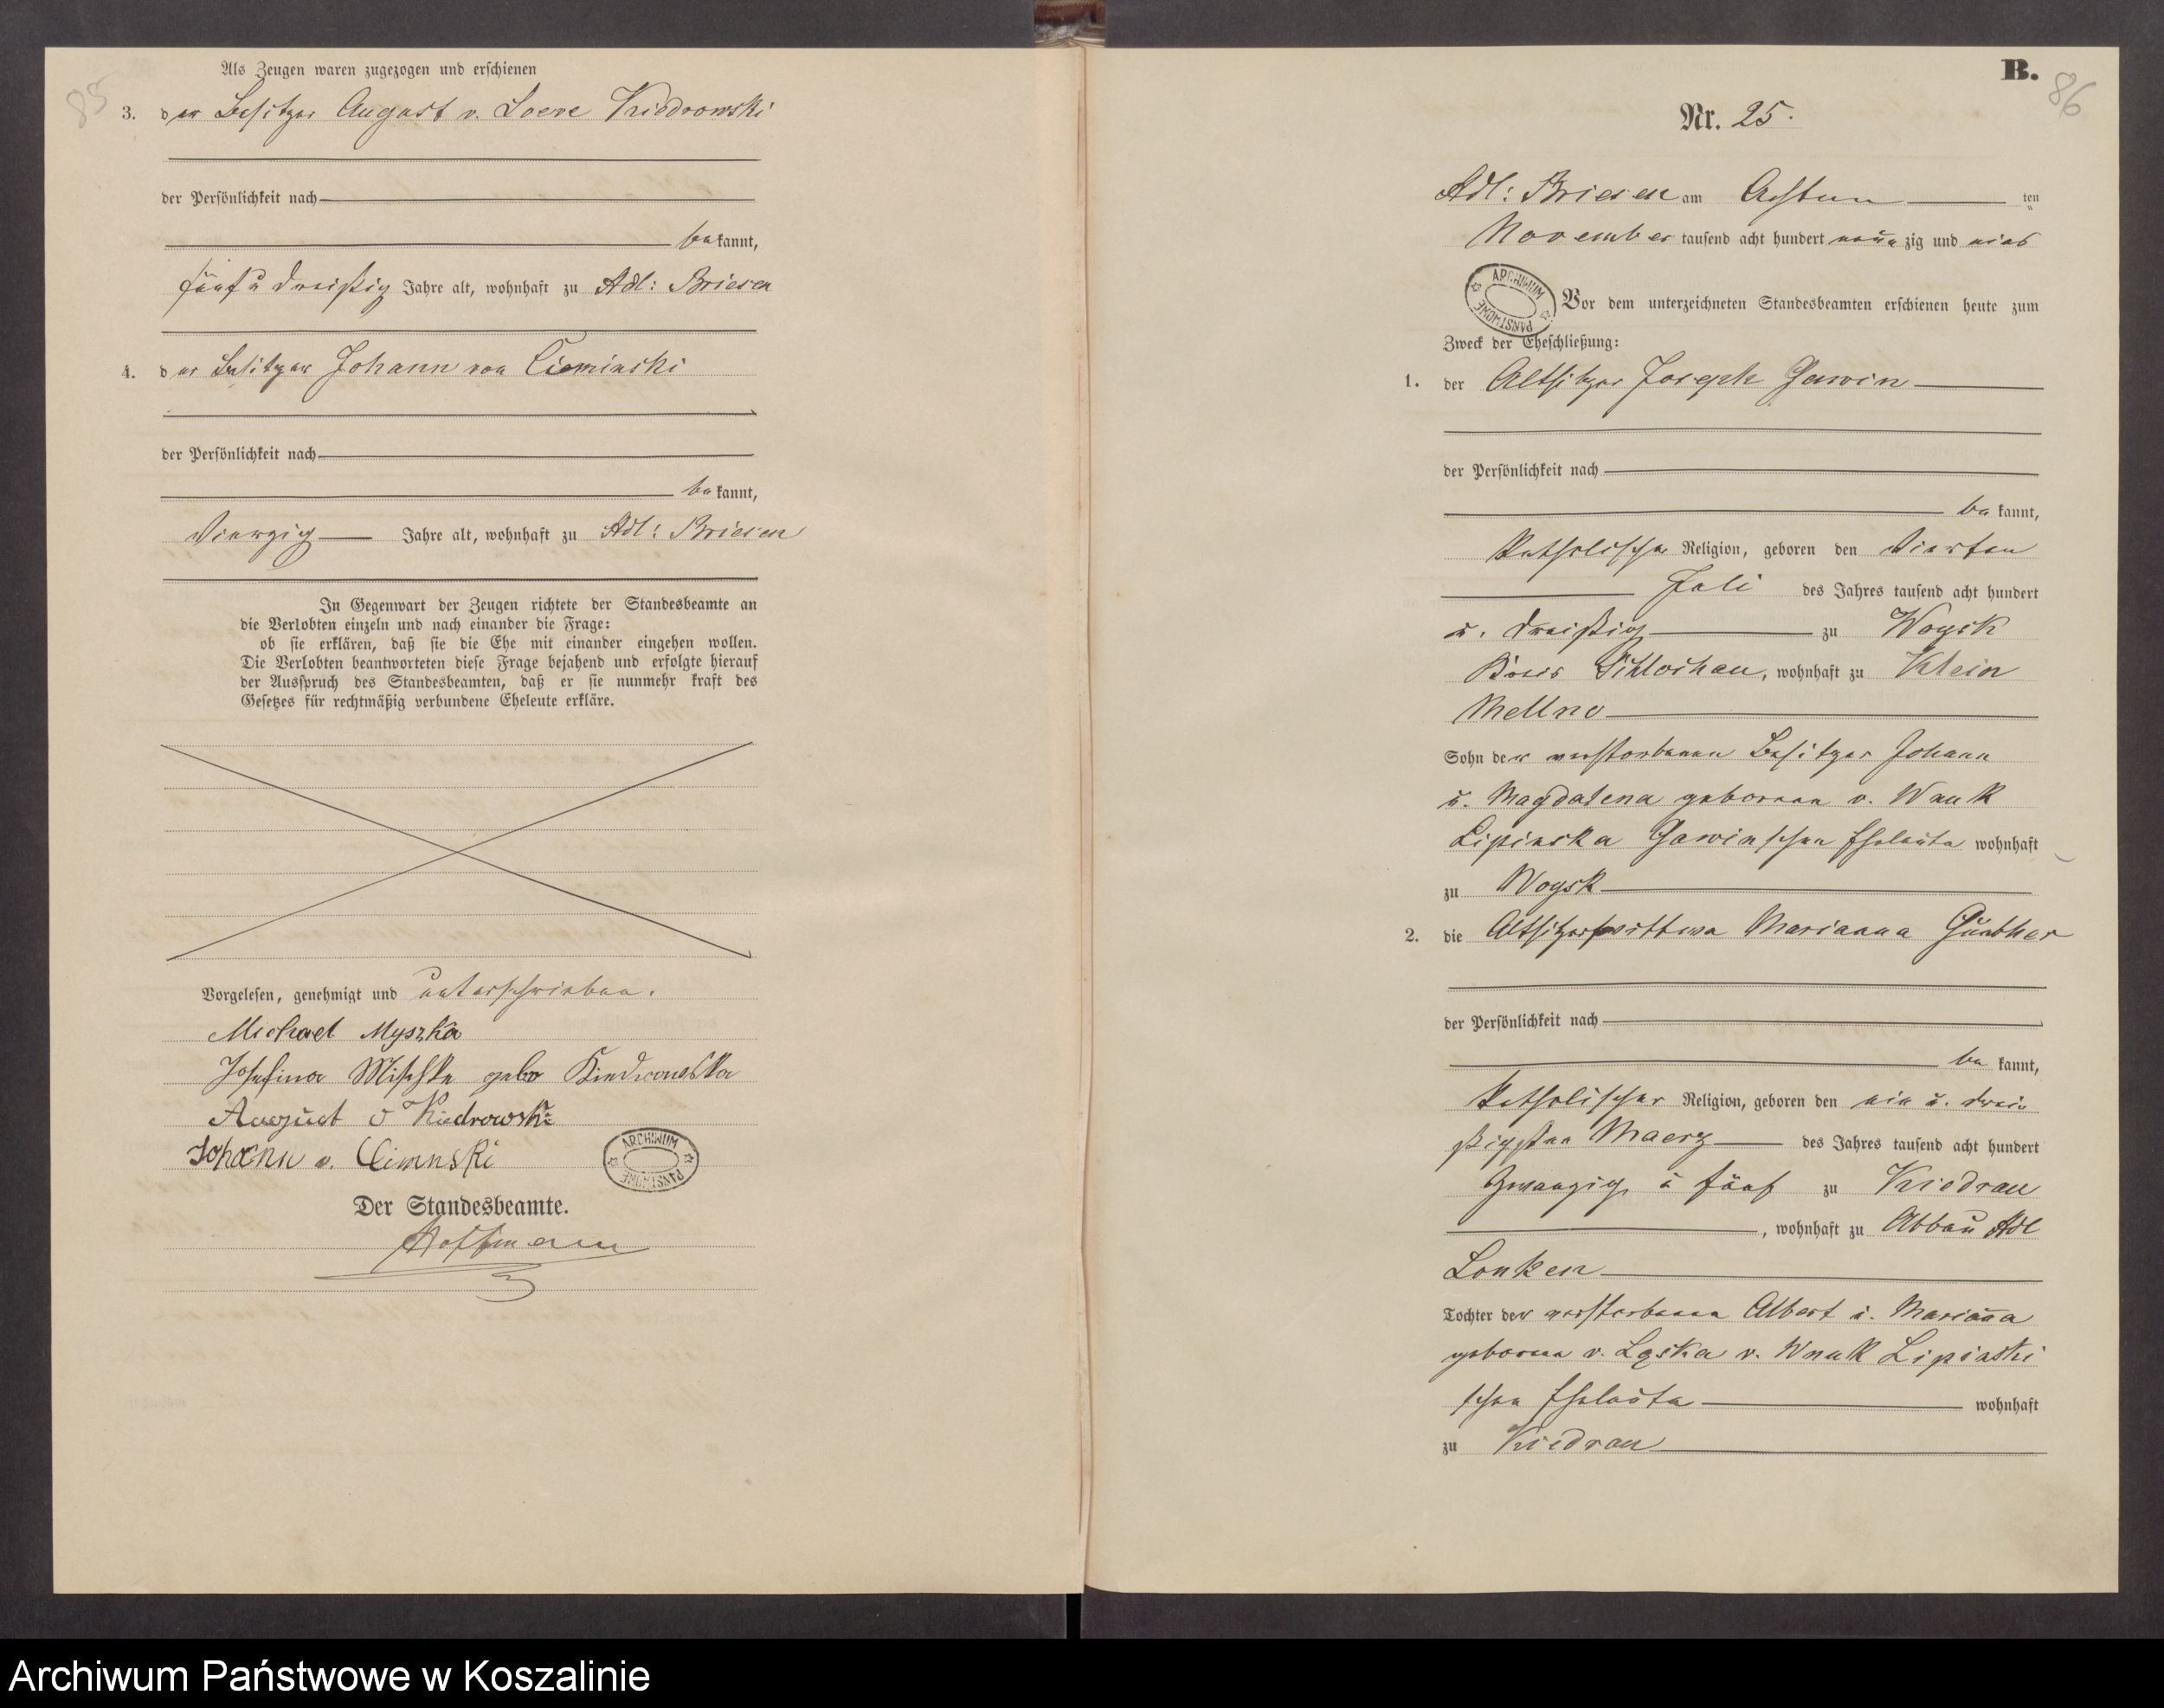 85
Als Zeugen waren zugezogen und erschienen
3. der Besitzer August v. Loeve Kiedrowski
der Persönlichkeit nach
be kannt,
fünf u dreißig Jahre alt, wohnhaft zu Adl: Briesen
4. der Besitzer Johann von Cieminski
der Persönlichkeit nach
be kannt,
Vierzig Jahre alt, wohnhaft zu Adl: Briesen
In Gegenwart der Zeugen richtete der Standesbeamte an
die Verlobten einzeln und nach einander die Frage:
ob sie erklären, daß sie die Ehe mit einander eingehen wollen.
Die Verlobten beantworteten diese Frage bejahend und erfolgte hierauf
der Ausspruch des Standesbeamten, daß er sie nunmehr kraft des
Gesetzes für rechtmäßig verbundene Eheleute erkläre.
Vorgelesen, genehmigt und unterschrieben.
Michael Myszka
Josefina Mischke gebo Kiedrowska
August v Kiedrowski
Johann v. Cimnski
ARCHIWUM PAŃSTWOWE
Der Standesbeamte.
Hoffmann
B.
86
Nr. 25.
Adl: Briesen am Achten ten
November tausend acht hundert neun zig und
ARCHIWUM PAŃSTWOWE
Vor dem unterzeichneten Standesbeamten erschienen heute zum
Zweck der Eheschließung:
1. der Altsitzer Joseph Gawin
der Persönlichkeit nach
be kannt,
katholischer Religion, geboren den Vierten
Juli des Jahres tausend acht hundert
u. dreißig zu Woysk
Kreis Schlochau, wohnhaft zu Klein
Mellno
Sohn der verstorbenen Besitzer Johann
u. Magdalena geborenen v. Wnuk
Lipinska Gawinschen Eheleute wohnhaft
zu Woysk
2. die Altsitzerwittwe Marianna Günther
der Persönlichkeit nach
be kannt,
katholischer Religion, geboren den ein u. drei
ßigsten Maerz des Jahres tausend acht hundert
Zwanzig u fünf zu Kiedrau
, wohnhaft zu Abbau Adl
Lonken
Tochter der verstorbenen Albert u. Marianna
geborene v. Lęska v. Wnuk Lipinski
schen Eheleute wohnhaft
zu Kiedrau
Archiwum Państwowe w Koszalinie